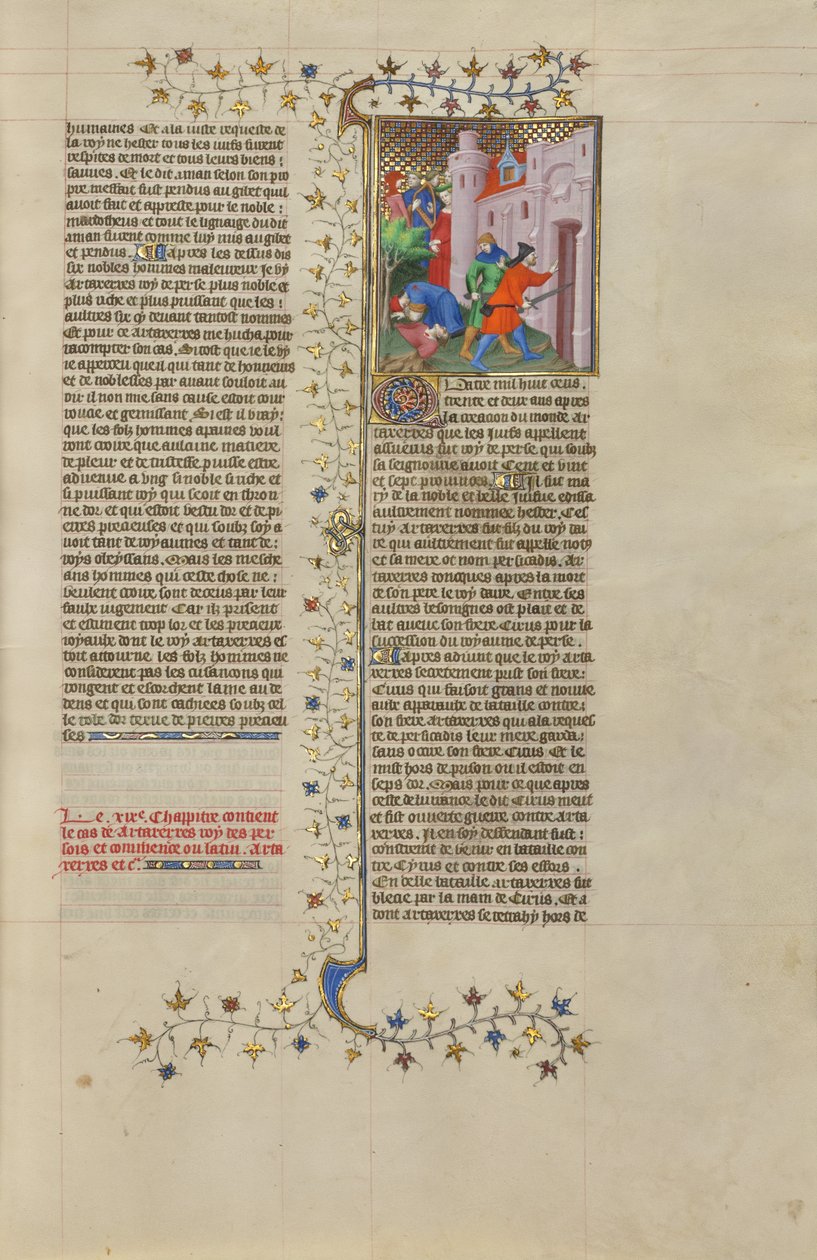 humaines Et a la iuste requeste de
la royne hester tous les iuifs furent
respites de mort et tous leurs biens :
sauues. Et le dit aman selon son pro
pre meffait fust pendus au gibet quil
auoit fait et appreste pour le noble :
mardocheus et tout le lignaige du dit
aman furent comme luy mis au gibet
et pendus. Apres les dessus dis
six nobles hommes maleureux ie vy
artaxerxes roy de perse plus noble et
plus riche et plus puissant que les :
aultres six cy deuant tantost nommes
Et pour ce artaxerxes me hucha pour
racompter son cas. Si tost que ie le vy
ie apperceu que il qui tant de honneurs
et de noblesses par auant souloit au
oir il non mie sans cause estoit cour
roucie et gemissant. Si est il vray :
que les folz hommes apaines voul
dront croire que aulcune matiere
de pleur et de tristesse puisse estre
aduenue a vng si noble si riche et
si puissant roy qui seoit en thron
ne dor et qui estoit vestu dor et de pi
erres precieuses et qui soubz soy a
uoit tant de royaumes et tant de :
roys obeyssans. Mais les mesche
ans hommes qui ceste chose ne :
veulent croire sont deceus par leur
faulx iugement Car ilz prisent
et estiment trop lor et les precieux
ioyaulx dont le roy artaxerxes es
toit attourne les folz hommes ne
considerent pas les cusancons qui
rongent et escorchent lame au de
dens et qui sont cachiees soubz cel
le robe dor texue de pierres precieu
ses
Le .xixe. Chappitre contient
le cas de Artaxerxes roy des per
sois et commence ou latin. Arta
xerxes et c.
Quatre mil huit cens.
trente et deux ans apres
la creacion du monde Ar
taxerxes que les Juifs appellent
assuerus fut roy de perse qui soubz
sa seignourie auoit Cent et vint
et sept prouinces. Il fut ma
ry de la noble et belle Juifue edissa
aultrement nommee hester. Ces
tuy Artaxerxes fut filz du roy dai
re qui aultrement fut appelle noty
et sa mere ot nom persicadis. Ar
taxerxes doncques apres la mort
de son pere le roy daire. Entre ses
aultres besoignes ost plait et de
bat auecu son frere Cirus pour la
succession du royaume de perse.
Apres aduint que le roy arta
xerxes secretement prist son frere :
Cirus qui faisoit grans et nouue
aulx apparaulx de bataille contre :
son frere artaxerxes qui a la reques
te de persicadis leur mere garda :
sans occire son frere Cirus Et le
mist hors de prison ou il estoit en
seps dor. Mais pour ce que apres
ceste deliurance le dit Cirus meut
et fist ouuerte guerre contre arta
xerxes. Il en soy deffendant fust :
constreint de venir en bataille con
tre Cyrus et contre ses effors .
En celle bataille artaxerxes fut
blecie par la main de Cirus. Et a
dont artaxerxes se retrahy hors de